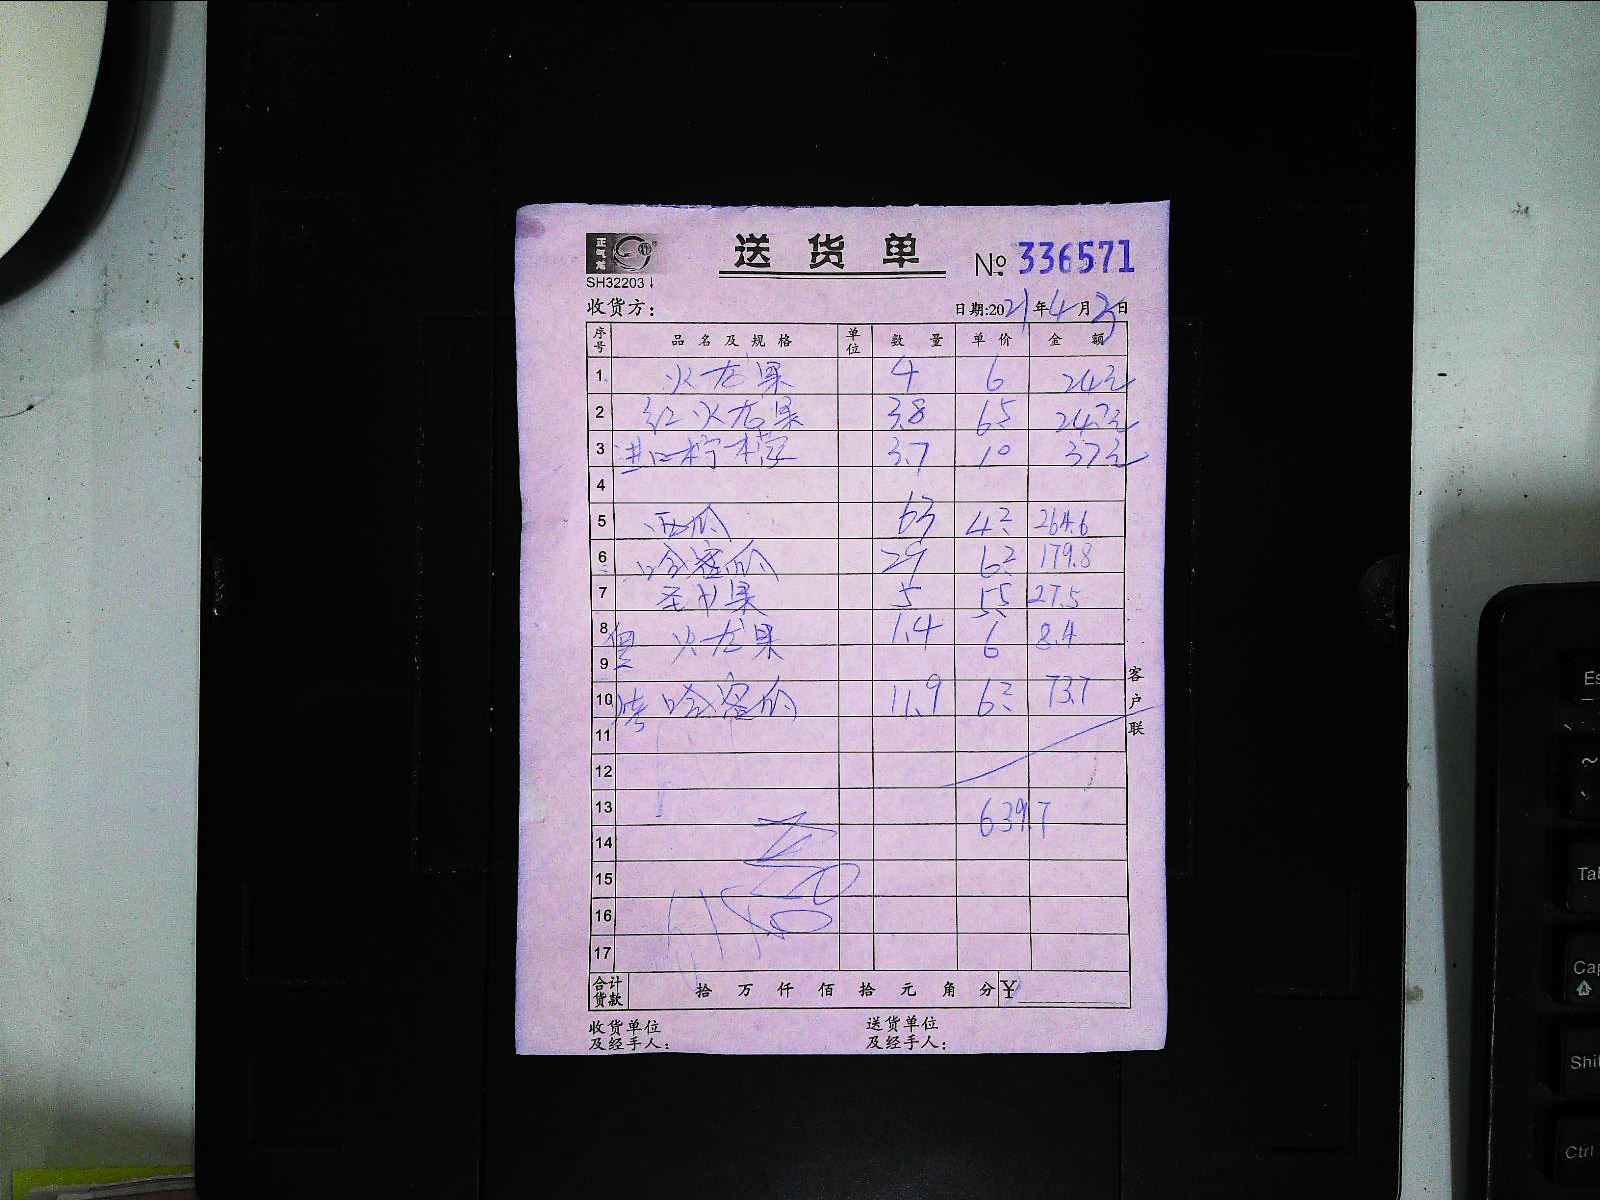 正气龙
送货单
№ 336571
SH32203
收货方:
日期:2021年4月3日
序号 品名及规格 单位 数量 单价 金额
1 火龙果 4 6 24元
2 红火龙果 3.8 6.5 24.7元
3 进口柠檬 3.7 10 37元
4
5 西瓜 63 4.2 264.6
6 哈蜜瓜 29 6.2 179.8
7 圣女果 5 5.5 27.5
8 火龙果 1.4 6 8.4
9
10 哈蜜瓜 11.9 6.2 73.7
11
12
13 639.7
14
15
16
17
合计货款 拾 万 仟 佰 拾 元 角 分 ¥
收货单位及经手人:
送货单位及经手人:
客户联
Es
~
Tab
Cap
Shi
Ctrl